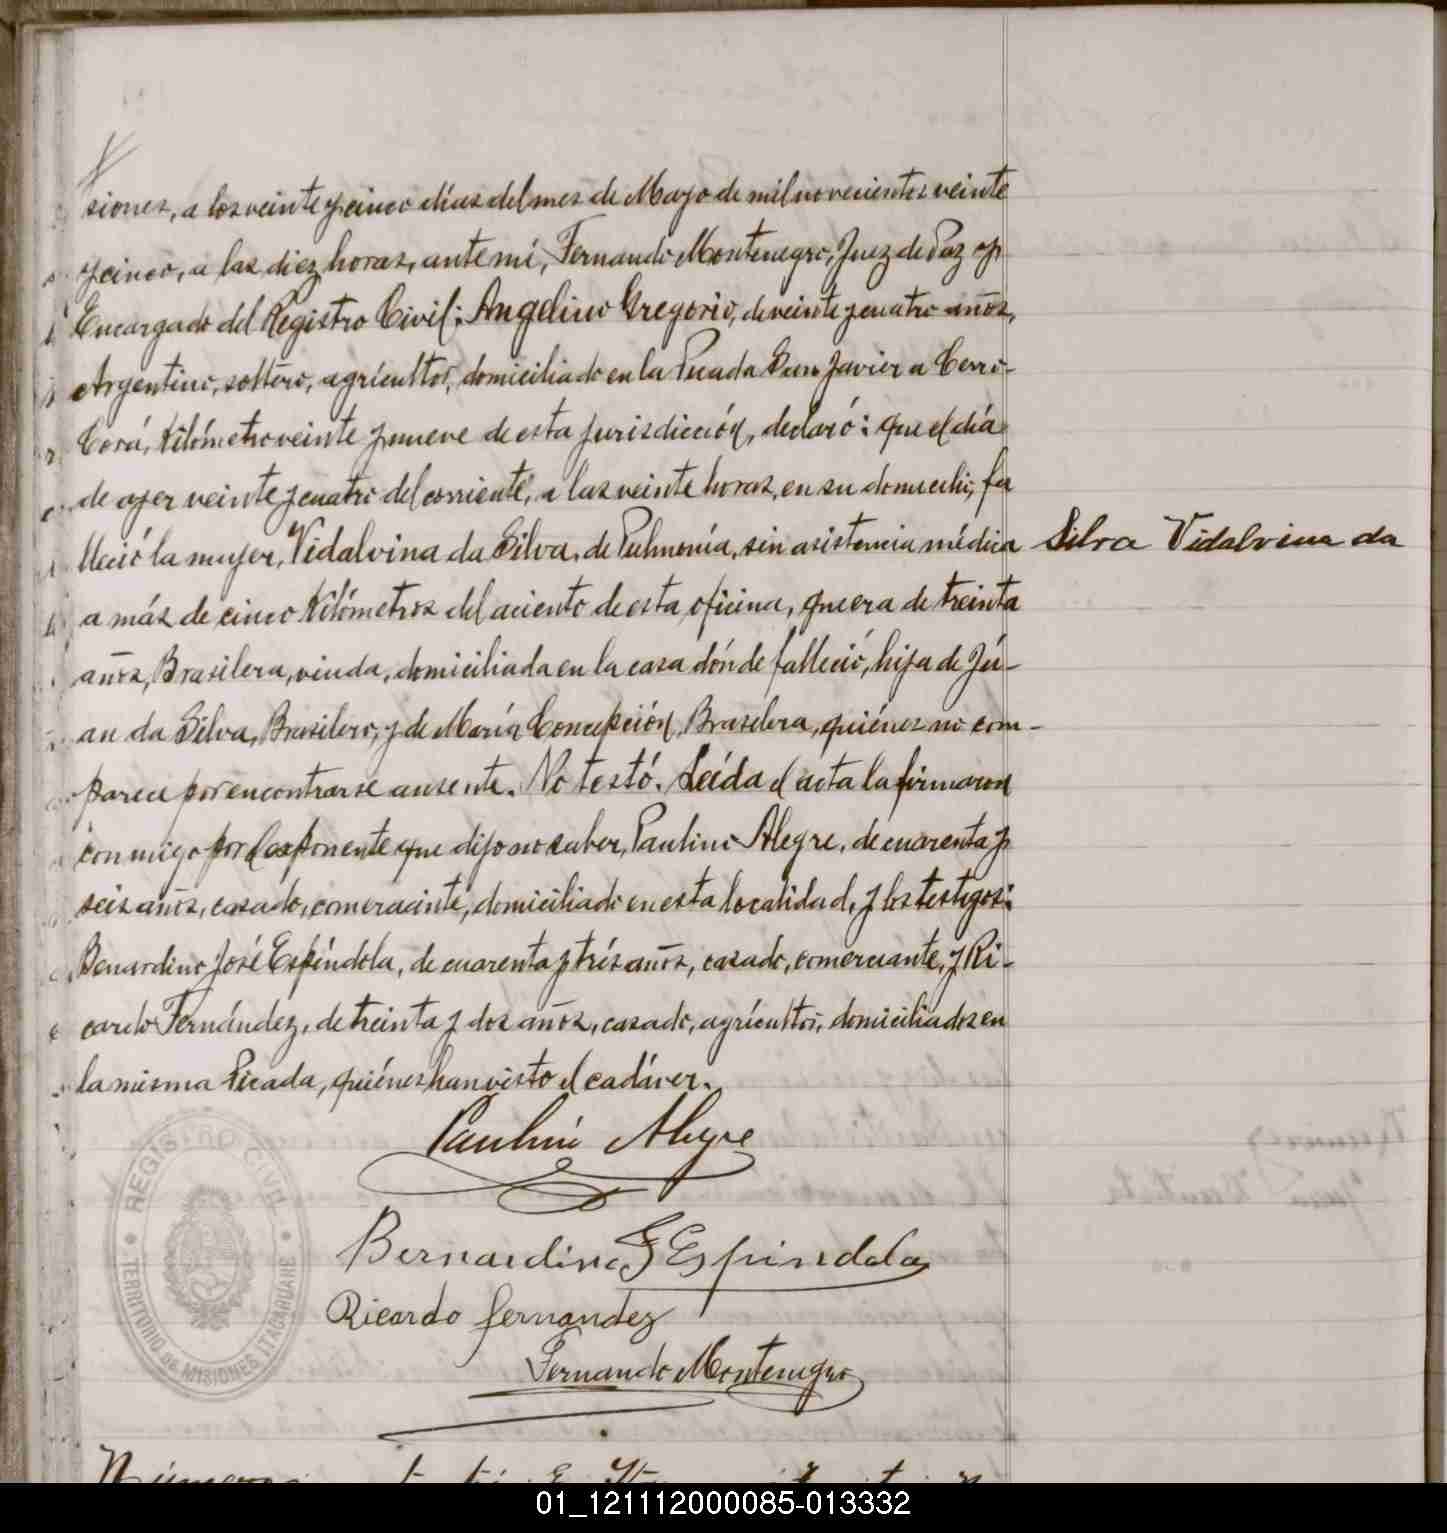 siones, a los veinte y cinco días del mes de Mayo de mil novecientos veinte
y cinco, a las diez horas, ante mí, Fernando Montenegro, Juez de Paz y
Encargado del Registro Civil: Angelino Gregorio, de veinte y cuatro años,
Argentino, soltero, agrícultor, domiciliado en la Picada San Javier a Cerro-
Corá, Kilómetro veinte y nueve de esta jurisdicción, declaró: que el día
de ayer veinte y cuatro del corriente, a las veinte horas, en su domicilio, fa
lleció la mujer, Vidalvina da Silva, de Pulmonía, sin asistencia médica
Silva Vidalvina da
a más de cinco Kilómetros del aciento de esta oficina, que era de treinta
años, Brasilera, viuda, domiciliada en la casa dónde falleció, hija de Jú-
an da Silva, Brasilero, y de María Concepción, Brasilera, quiénes no com-
parece por encontrarse ausente. No testó. Leída el acta la firmaron
conmigo por el exponente que dijo no saber, Paulino Alegre, de cuarenta y
seis años, casado, comerciante, domiciliado en esta localidad, y los testigos:
Benardino José Espíndola, de cuarenta y trés años, casado, comerciante, y Ri-
cardo Fernández, de treinta y dos años, casado, agrícultor, domiciliados en
la misma Picada, quiénes han visto el cadáver.
Paulino Alegre
Bernardino J Espindola
Ricardo fernandez
Fernando Montenegro
REGISTRO CIVIL
TERRITORIO DE MISIONES ITACARUARE
Número
01_121112000085-013332